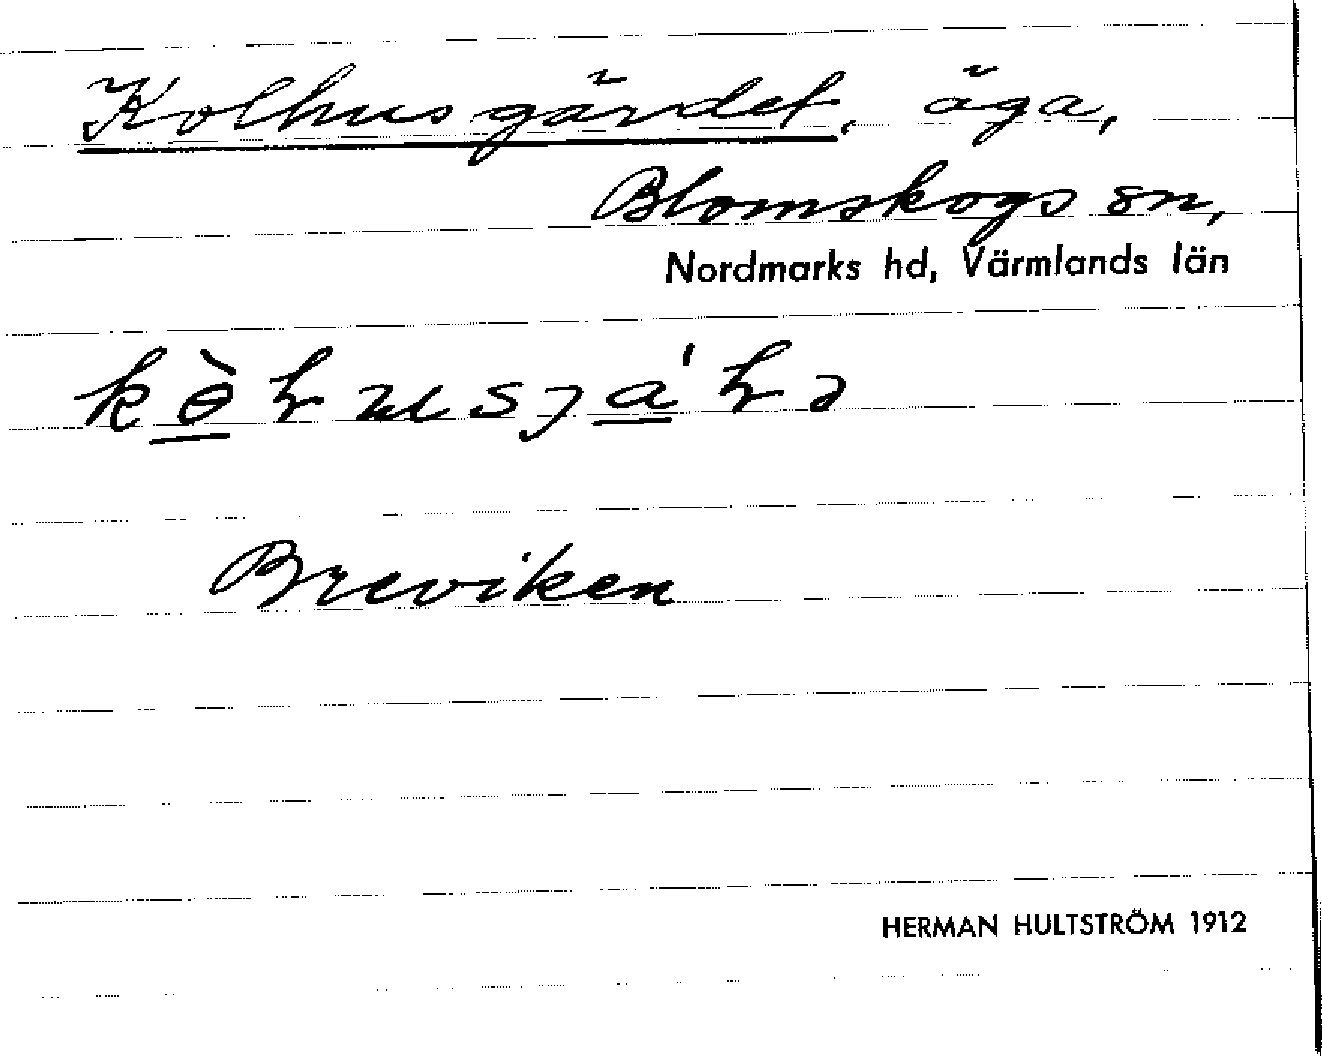 Kolhusgärdet, äga,
Blomskogs sn,
Nordmarks hd, Värmlands län
Breviken
HERMAN HULTSTRÖM 1912